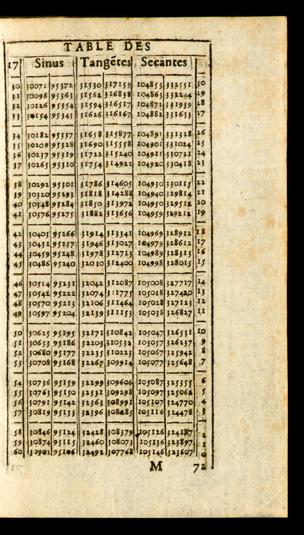 TABLE DES
17 Sinus Tangẽtes Secantes
30 30071 95372 31530 317159 104853 332551 30
31 30098 95363 31562 316838 104863 332244 29
32 30126 95354 31594 316517 104872 331939 28
33 30154 95345 31626 316197 104882 331633 27
34 30182 95337 31658 315877 104891 331328 26
35 30209 95328 31690 315558 104901 331024 25
36 30237 95319 31722 315240 104911 330721 24
37 30265 95310 31754 314922 104920 330418 23
38 30292 95301 31786 314605 104930 330115 22
39 30320 95293 31818 314288 104940 329814 21
40 30348 95284 31850 313972 104950 329512 20
41 30376 95275 31882 313656 104959 329212 19
42 30403 95266 31914 313341 104969 328912 18
43 30431 95257 31946 313027 104979 328612 17
44 30459 95248 31978 312713 104989 328313 16
45 30486 95240 32010 312400 104998 328015 15
46 30514 95231 32042 312087 105008 327717 14
47 30542 95222 32074 311775 105018 327420 13
48 30570 95213 32106 311464 105028 327123 12
49 30597 95204 32139 311153 105038 326827 11
50 30625 95195 32171 310842 105047 326531 10
51 30653 95186 32203 310532 105057 326237 9
52 30680 95177 32235 310223 105067 325942 8
53 30708 95168 32267 309914 105077 325648 7
54 30736 95159 32299 309606 105087 325355 6
55 30763 95150 32331 309298 105097 325062 5
56 30791 95142 32363 308991 105107 324770 4
57 30819 95133 32396 308685 105116 324478 3
58 30846 95124 32428 308379 105126 324187 2
59 30874 95115 32460 308073 105136 323897 1
60 30902 95106 32492 307768 105146 323607 0
M 72